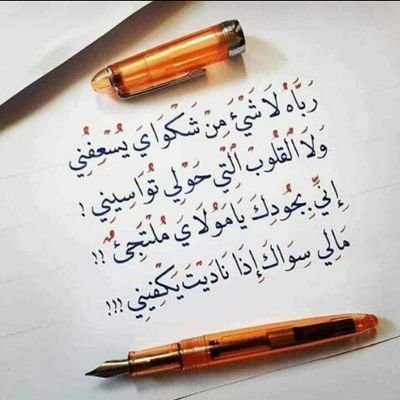 رَبَّاهُ لَا شَيْءَ مِنْ شَكْوَايَ يُسْعِفُنِي
وَلَا الْقُلُوبُ الَّتِي حَوْلِي تُوَاسِينِي !
إِنِّي بِجُودِكَ يَا مَوْلَايَ مُلْتَجِئٌ !!
مَالِي سِوَاكَ إِذَا نَادَيْتُ يَكْفِينِي !!!